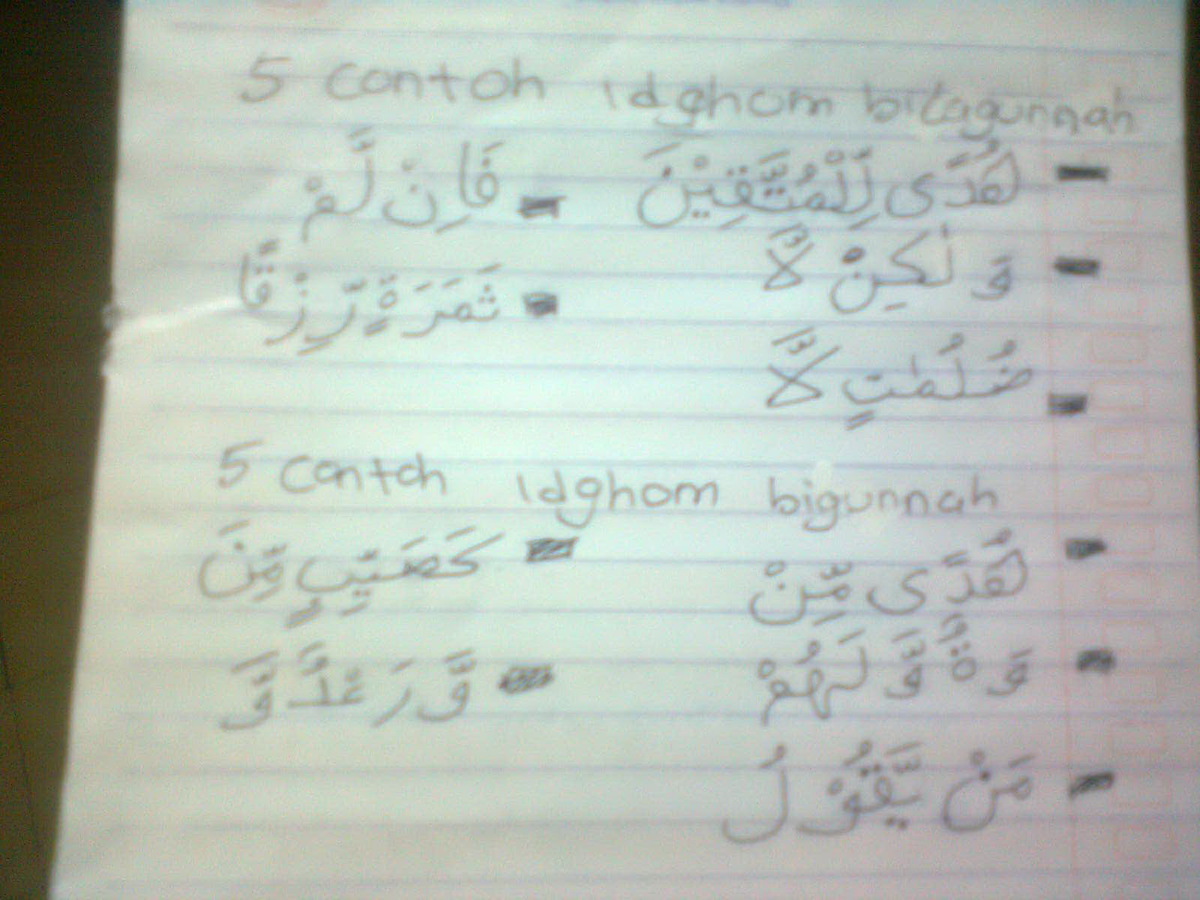 5 contoh idghom bilagunnah
- هُدًى لِّلْمُتَّقِيْنَ - فَاِنْ لَّمْ
- وَلٰكِنْ لَّا - ثَمَرَةٍ رِّزْقًا
- ضُلُمٰتٍ لَّا
5 contoh idghom bigunnah
- هُدًى مِّنْ - كَصَيِّبٍ مِّنَ
- وَةٌ وَّلَهُمْ - وَّرَعْدٌ وَّ
- مَنْ يَّقُوْلُ